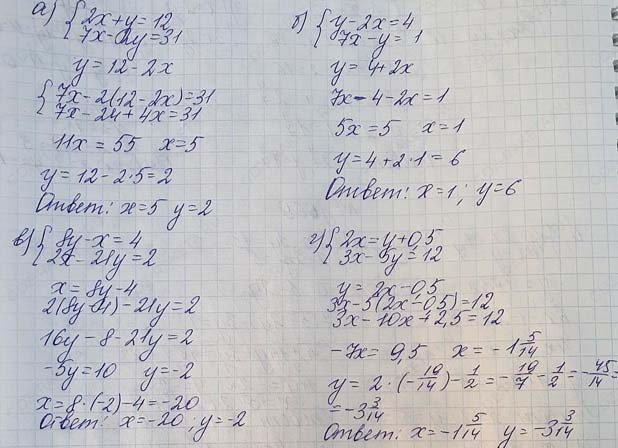 а) { 2x+y=12
7x-2y=31
y=12-2x
{ 7x-2(12-2x)=31
7x-24+4x=31
11x=55 x=5
y=12-2·5=2
Ответ: x=5 y=2
б) { y-2x=4
7x-y=1
y=4+2x
7x-4-2x=1
5x=5 x=1
y=4+2·1=6
Ответ: x=1; y=6
в) { 8y-x=4
2x-21y=2
x=8y-4
2(8y-4)-21y=2
16y-8-21y=2
-5y=10 y=-2
x=8·(-2)-4=-20
Ответ: x=-20, y=-2
г) { 2x=y+0,5
3x-5y=12
y=2x-0,5
3x-5(2x-0,5)=12
3x-10x+2,5=12
-7x=9,5 x=-1 5/14
y=2·(-19/14)-1/2=-19/7-1/2=-45/14=
=-3 3/14
Ответ: x=-1 5/14 y=-3 3/14